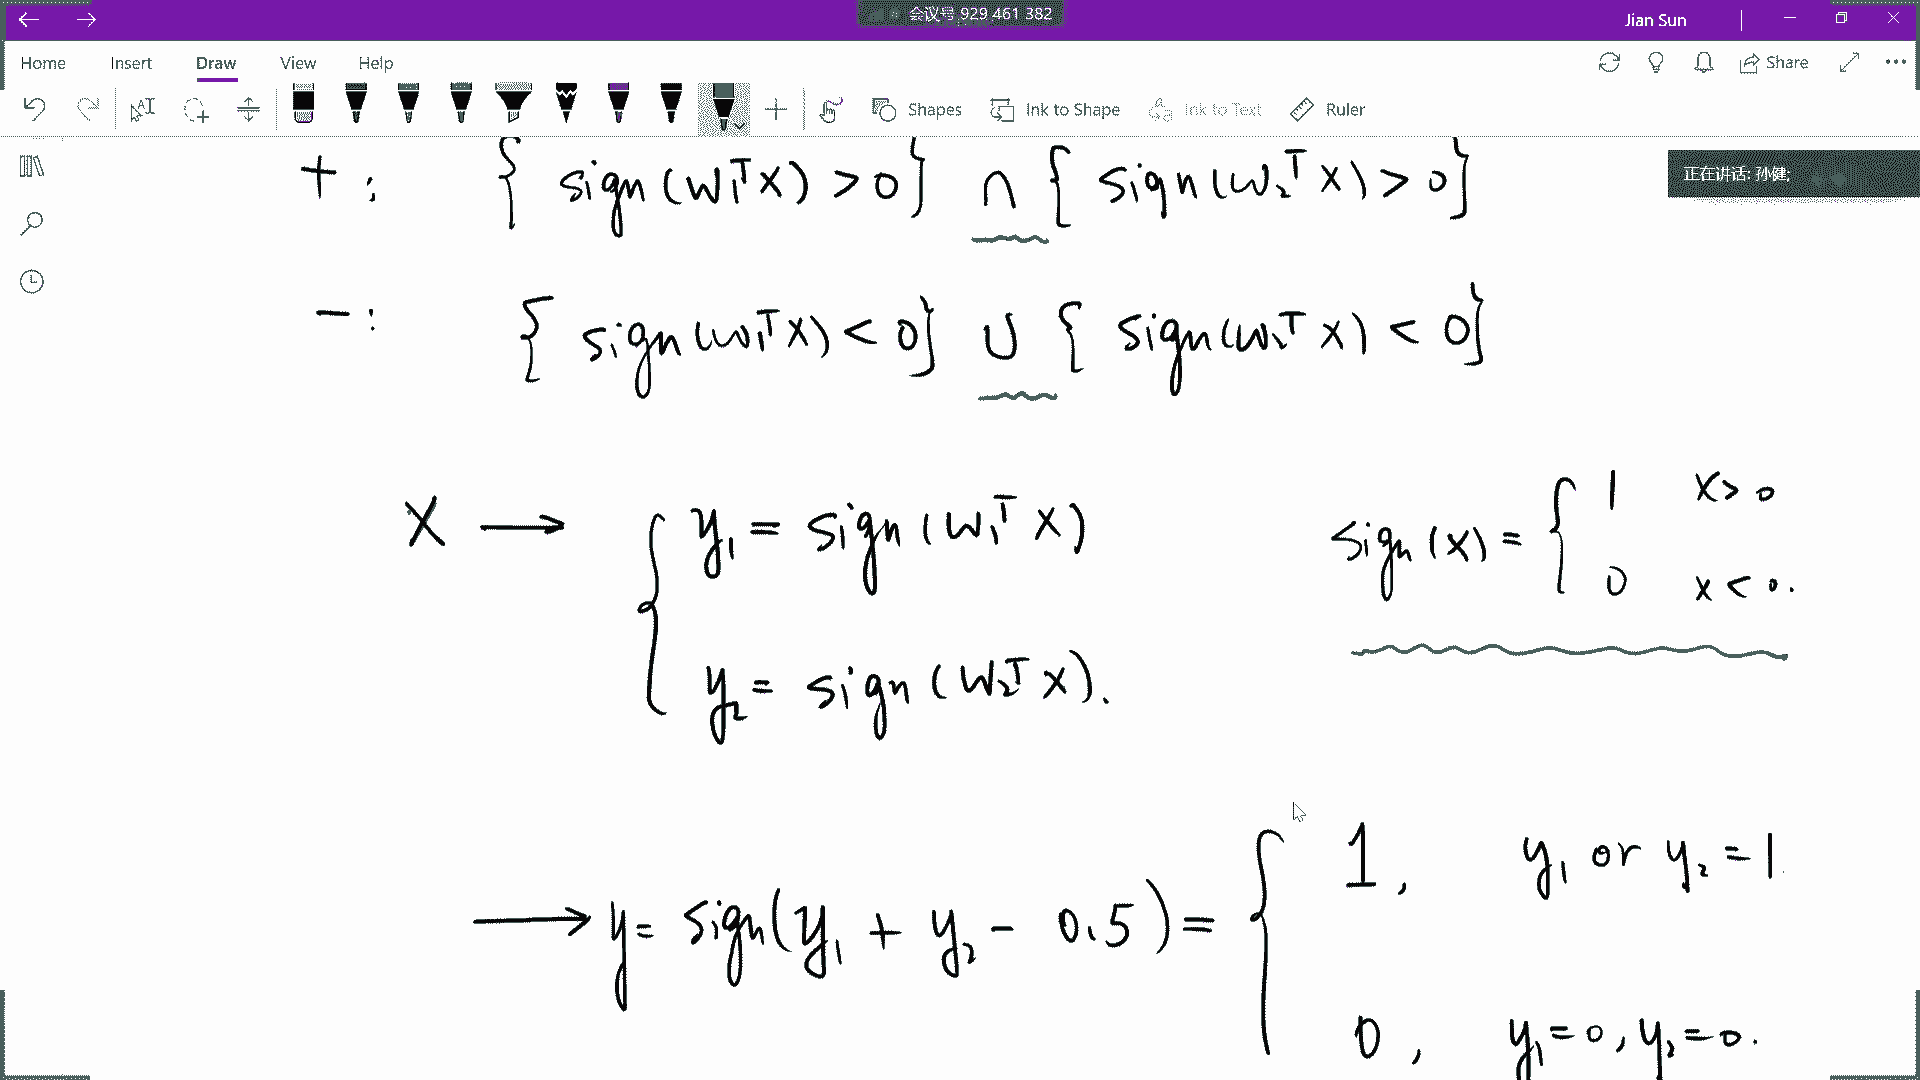 会议号 929 461 382
Jian Sun
Home Insert Draw View Help Share
Shapes Ink to Shape Ink to Text Ruler
正在讲话: 孙健;
+ : { sign(w₁ᵀx) > 0 } ∩ { sign(w₂ᵀx) > 0 }
− : { sign(w₁ᵀx) < 0 } ∪ { sign(w₂ᵀx) < 0 }
x → { y₁ = sign(w₁ᵀx)
y₂ = sign(w₂ᵀx).
sign(x) = { 1 x > 0
0 x < 0.
→ y = sign(y₁ + y₂ − 0.5) = { 1, y₁ or y₂ = 1.
0, y₁ = 0, y₂ = 0.